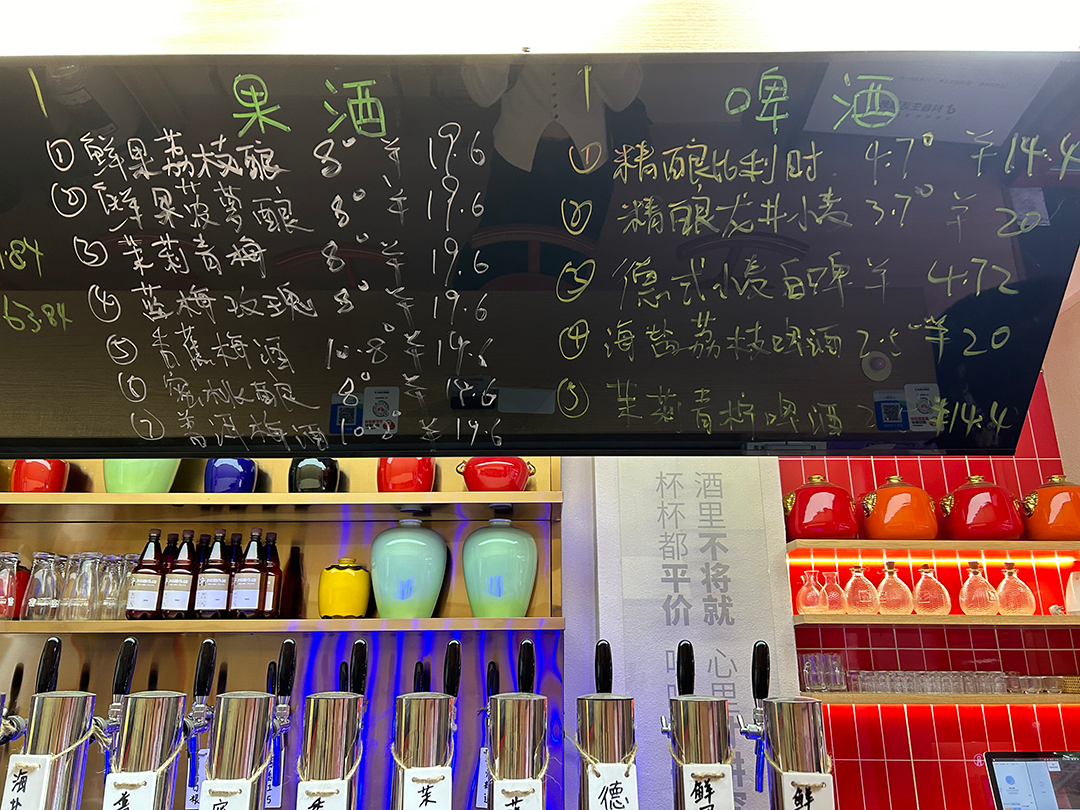 果酒
①鲜果荔枝酿 8° ¥ 19.6
②鲜果菠萝酿 8° ¥ 19.6
③茉莉青梅 8° ¥ 19.6
④蓝梅玫瑰 8° ¥ 19.6
⑤青蕉梅酒 10.8° ¥ 19.6
⑥窖冰酿 8° ¥ 19.6
⑦普洱梅酒 10.8° ¥ 19.6
.84
63.84
啤酒
①精酿比利时 4.7° ¥14.4
②精酿龙井小麦 3.7° ¥ 20
③德式小麦白啤 ¥ 4.72
④海盐荔枝啤酒 2.5° ¥20
⑤茉莉青柠啤酒 ¥14.4
酒里不将就
杯杯都平价
心里
海
茉
德
鲜
鲜